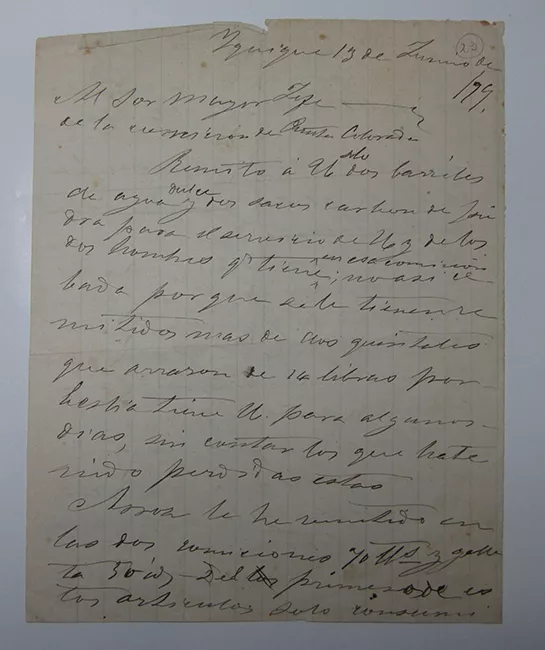 Yquique 13 de Junio de
(22)
/79.
Al Sor Mayor Jefe
de la comision de Punta Colorada
Remito á U. solo dos barriles
de agua dulce y dos sacos carbon de pie
dra para el servicio de U. y de los
dos hombres qe tiene en esa comision; no asi ce
bada porque se le tienen re
mitidos mas de dos quintales
que a razon de 14 libras por
bestia tiene U. para algunos
dias, sin contar los que ha te
nido perdidas estas
Arroz le he remitido en
las dos comisiones 70 lbs y galle
ta 50 id Del primero de es
tos articulos solo consumi